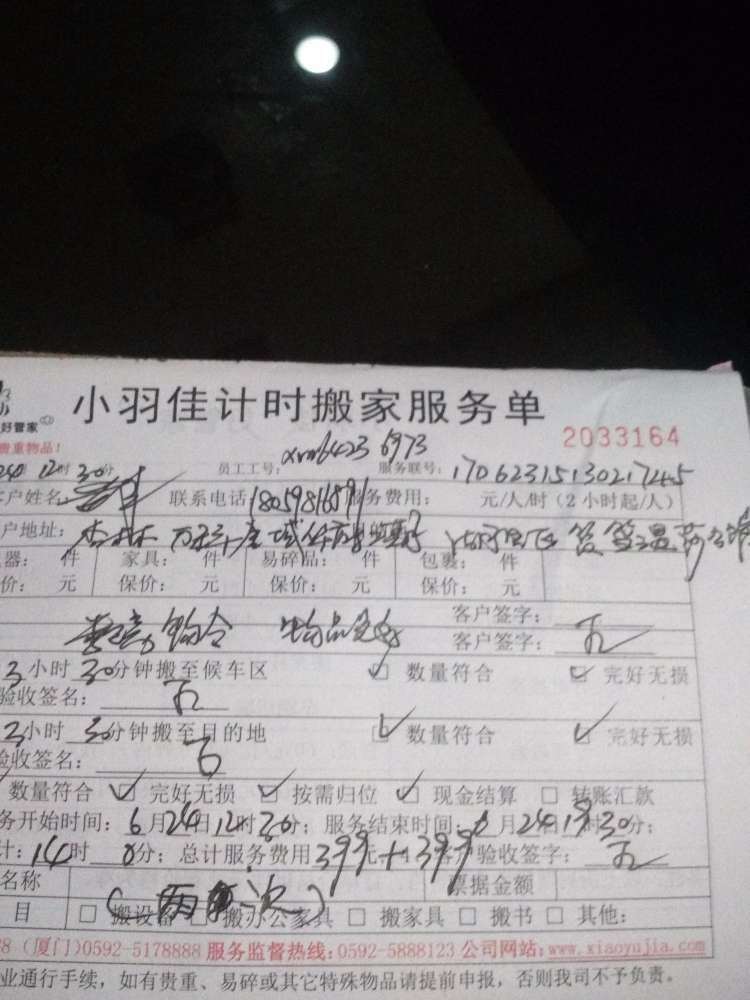 小羽佳计时搬家服务单
好管家
2033164
贵重物品！
12时30分 员工工号： xm6423 6973 服务联号：17062315130217245
客户姓名： 联系电话18059816591服务费用： 元/人/时（2小时起/人）
户地址：杏林
器： 件 家具： 件 易碎品： 件 包裹： 件
价： 元 保价： 元 保价： 元 保价： 元
客户签字：
物品完好 客户签字：
3小时30分钟搬至候车区 ☑ 数量符合 ☑ 完好无损
验收签名：
3小时30分钟搬至目的地 ☑ 数量符合 ☑ 完好无损
验收签名：
数量符合 ☑ 完好无损 ☑ 按需归位 ☑ 现金结算 □ 转账汇款
务开始时间：6月24日12时30分；服务结束时间：6月24日19时30分；
计：14时0分；总计服务费用399元+399 客户验收签字：
名称 （两车次） 票据金额
目 □ 搬设备 □ 搬办公家具 □ 搬家具 □ 搬书 □ 其他：
78（厦门）0592-5178888 服务监督热线：0592-5888123 公司网站：www.xiaoyujia.com
业通行手续，如有贵重、易碎或其它特殊物品请提前申报，否则我司不予负责。